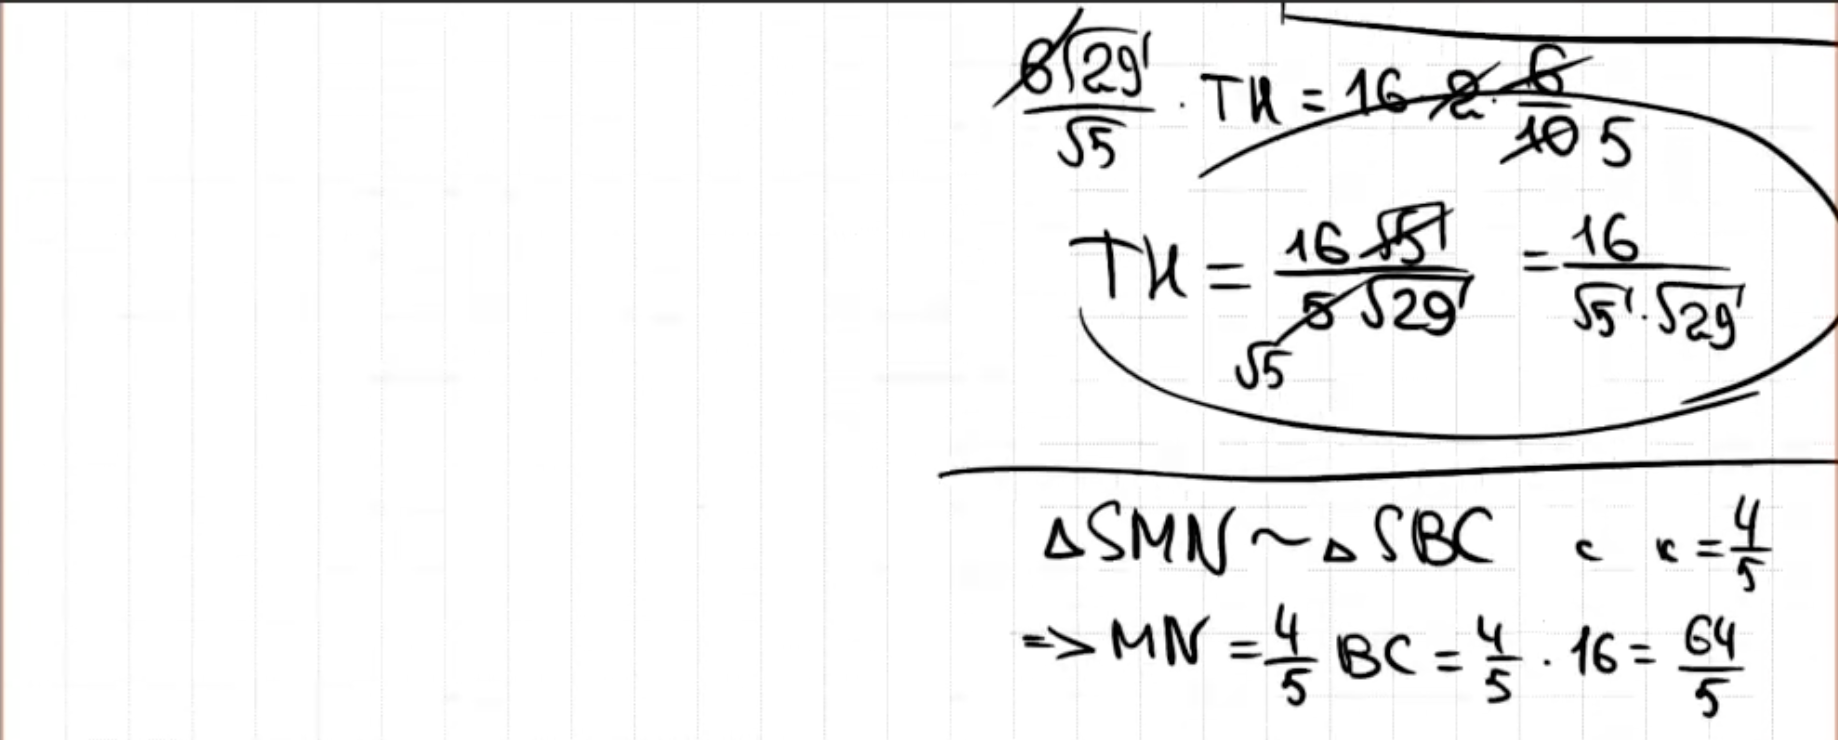 6√29/√5 · TH = 16 · 2 · 6/10 5
TH = 16√5/5√29 = 16/√5 · √29
√5
△SMN ~ △SBC с к = 4/5
=> MN = 4/5 BC = 4/5 · 16 = 64/5